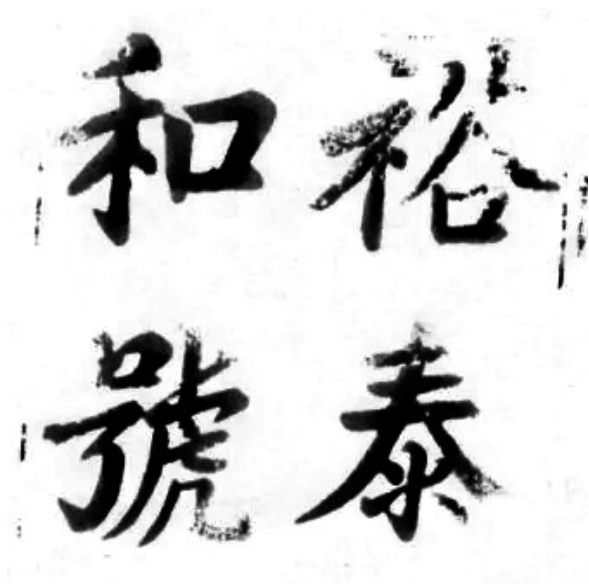 裕泰
和號